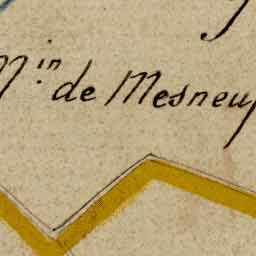 Min de Mesneuf